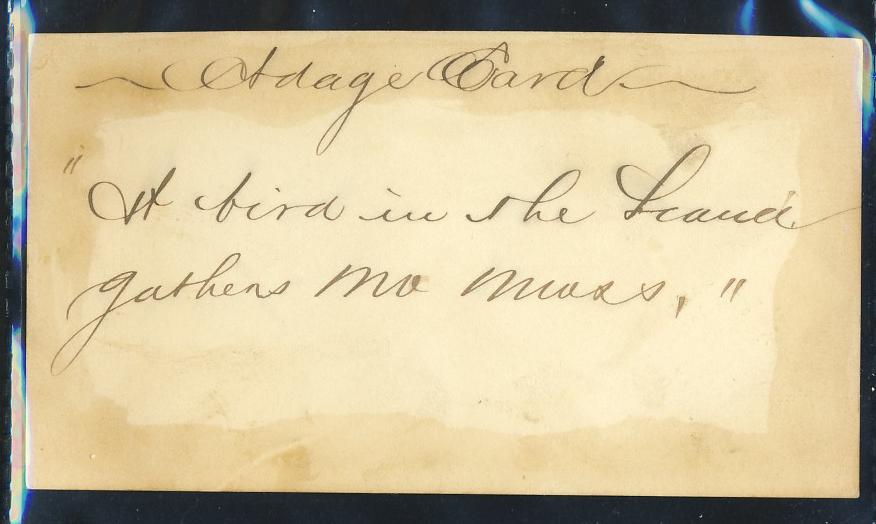 ~ Adage Card ~
"A bird in the hand
gathers no moss."